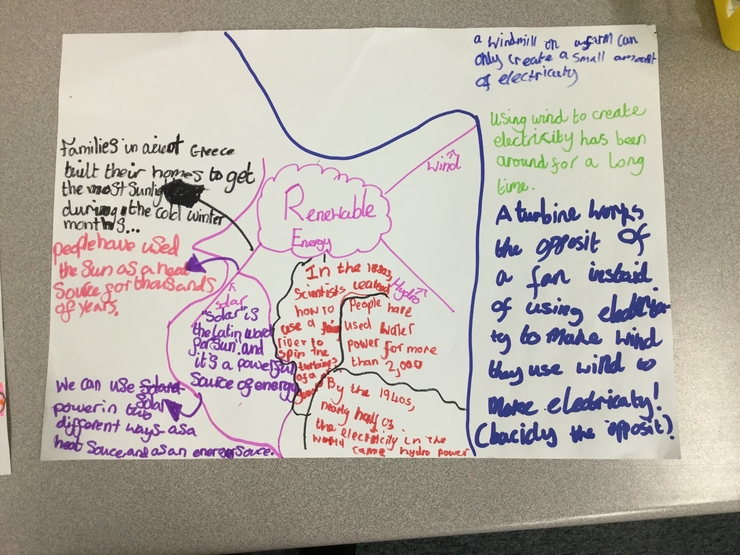 a windmill on a farm can
only create a small amount
of electricaty
Using wind to create
electricity has been
around for a long
time.
A turbine works
the opposit of
a fan instead
of using electrici
ty to make wind
they use wind to
make electricaty!
(bacidy the opposit).
Wind
Renewable
Energy
Hydro
Solar
Families in acient Greece
built their homes to get
the most Sunlig
during the cold winter
months...
people have used
the Sun as a heat
Source for thousands
of years.
"Solar" is
the Latin word
for sun. and
it's a powerful
Source of energy
We can use
Solar
power in two
different ways as a
heat Source and as an energy source.
In the 1880s,
Scientists learned
how to
use a
river to
spin the
turbines
of a
People have
used water
power for more
than 2,000
By the 1940s,
nearly half of
the electricity in the
world came hydro power